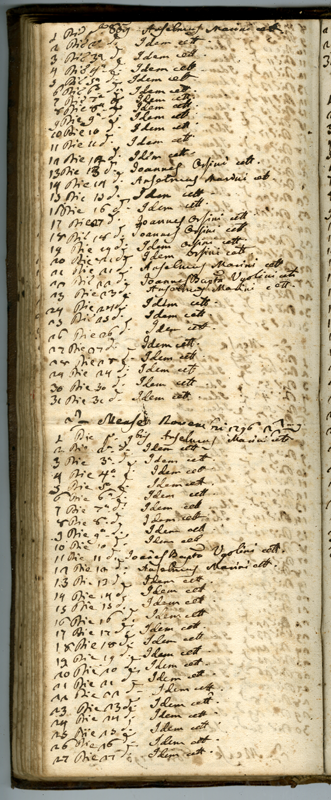 1 Die pa Anselmus Marini cett
2 Die 2 d. Idem cett
3 Die 3a d. Idem cett
4 Die 4a d. Idem cett
5 Die 5a d. Idem cett
6 Die 6a d. Idem cett
7 Die 7a d. Idem cett
8 Die 8a d. Idem cett
9 Die 9a d. Idem cett
10 Die 10 d. Idem cett
11 Die 11 d. Idem cett
12 Die 12 d. Idem cett
13 Die 13 d. Joannes Orsini cett.
14 Die 14 d. Anselmus Marini cett
15 Die 15 d. Idem cett
16 Die 16 d. Idem cett
17 Die 17 d. Joannes Orsini cett
18 Die 18 d. Joannes Orsini cett
19 Die 19 d. Idem Orsini cett.
20 Die 20 d. Idem Orsini cett
21 Die 21 d. Anselmus Marini cett
22 Die 22 d. Joannes Bapta Ugolini cett
23 Die 23 d. Anselmus Marini cett.
24 Die 24 d. Idem cett
25 Die 25 d. Idem cett
26 Die 26 d. Idem cett
27 Die 27 d. Idem cett
28 Die 28 d. Idem cett
29 Die 29 d. Idem cett
30 Die 30 d. Idem cett
31 Die 31 d. Idem cett
Mense 1796
1 Die pa 9bris Anselmus Marini cett
2 Die 2a d. Idem cett
3 Die 3a d. Idem cett
4 Die 4a d. Idem cett
5 Die 5a d. Idem cett
6 Die 6a d. Idem cett
7 Die 7a d. Idem cett
8 Die 8 d. Idem cett
9 Die 9a d. Idem cett
10 Die 10 d. Idem cett
11 Die 11 d. Joannes Bapta Ugolini cett.
12 Die 12 d. Anselmus Marini cett.
13 Die 13 d. Idem cett
14 Die 14 d. Idem cett
15 Die 15 d. Idem cett
16 Die 16 d. Idem cett
17 Die 17 d. Idem cett
18 Die 18 d. Idem cett
19 Die 19 d. Idem cett
20 Die 20 d. Idem cett
21 Die 21 d. Idem cett
22 Die 22 d. Idem cett
23 Die 23 d. Idem cett
24 Die 24 d. Idem cett
25 Die 25 d. Idem cett
26 Die 26 d. Idem cett
27 Die 27 d. Idem cett